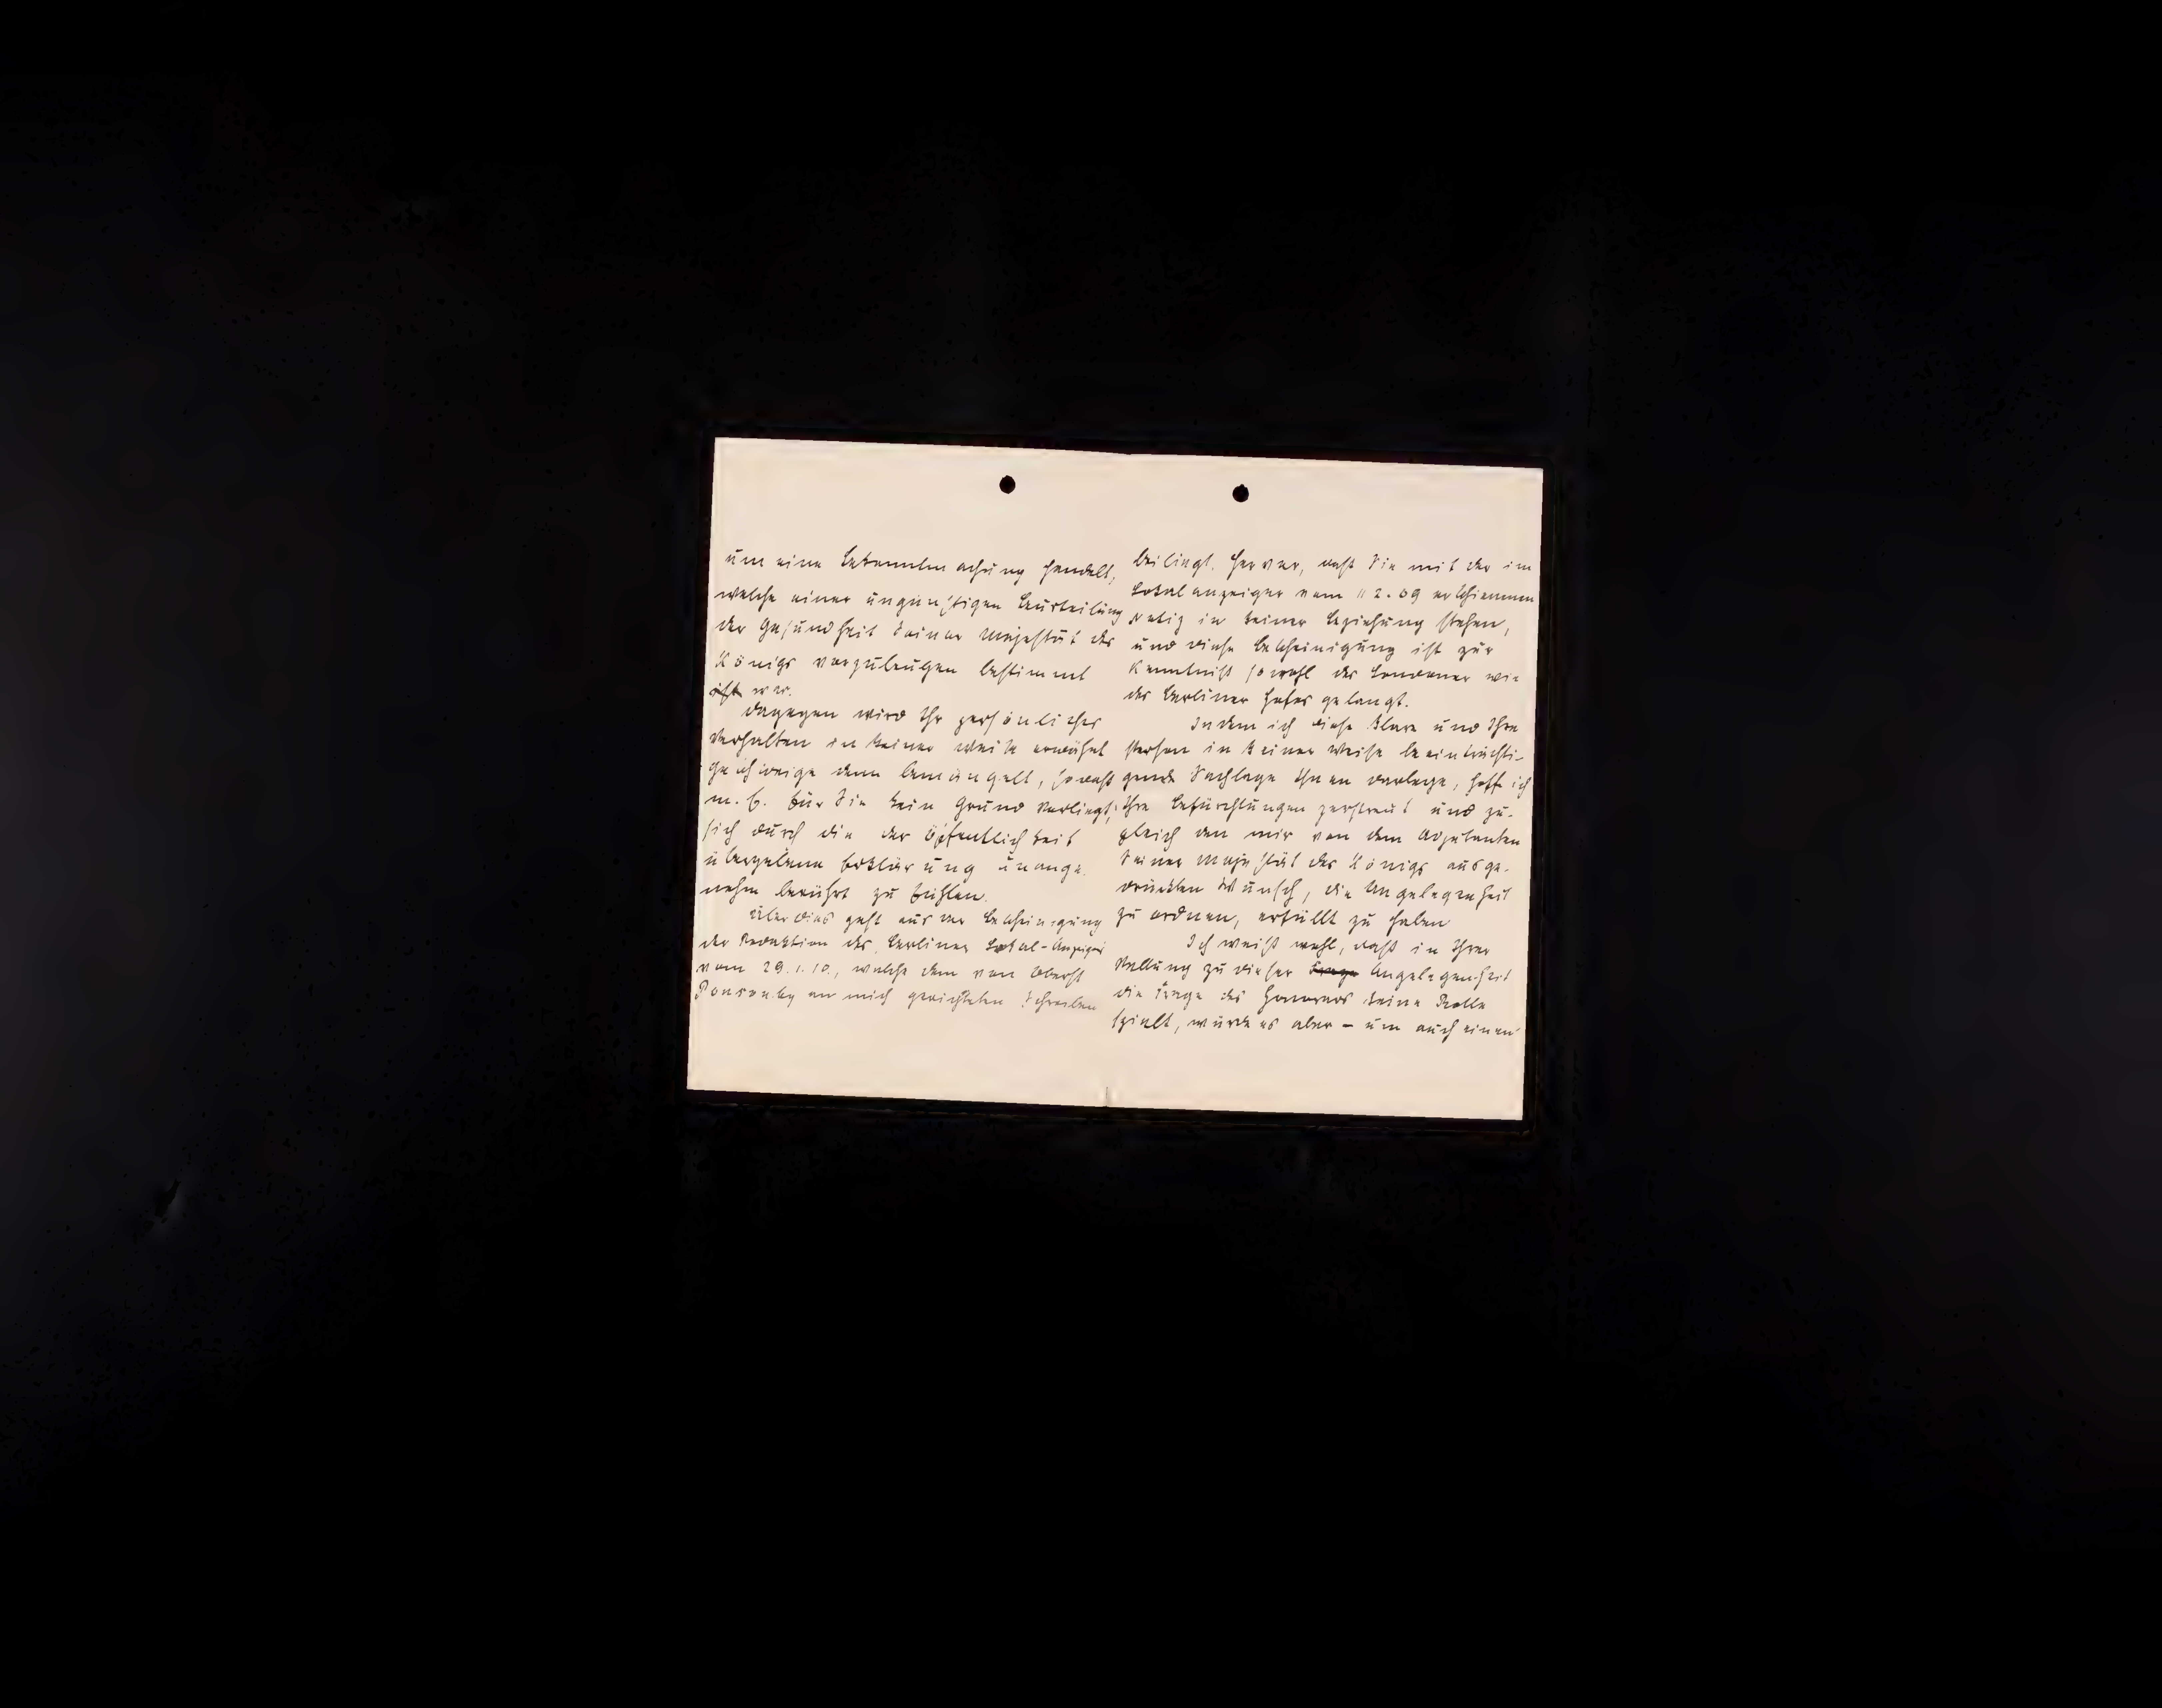 um eine Bekanntmachung handelt,
welche einer ungünstigen Beurteilung
der Gesundheit Seiner Majestät des
Königs vorzubeugen bestimmt
ist war.
Dagegen wird Ihr persönliches
Verhalten in keiner Weise erwähnt
geschweige denn bemängelt, sodaß
m. E. für Sie kein Grund vorliegt,
sich durch die der Öffentlichkeit
übergebene Erklärung unange-
nehm berührt zu fühlen.
Überdies geht aus der Bescheinigung
der Redaktion des Berliner Lokal-Anzeiger
vom 29.1.10., welche dem von Oberst
Ponsonby an mich gerichteten Schreiben
beiliegt. hervor, daß Sie mit der im
Lokalanzeiger vom 11 2. 09 erschienenen
Notiz in keiner Beziehung stehen,
und diese Bescheinigung ist zur
Kenntniß sowohl des Londoner wie
des Berliner Hofes gelangt.
Indem ich diese klare und Ihre
Person in keiner Weise beeinträchti-
gende Sachlage Ihnen darlege, hoffe ich
Ihre Befürchtungen zerstreut und zu-
gleich den mir von dem Adjutanten
Seiner Majestät des Königs ausge-
drückten Wunsch, die Angelegenheit
zu ordnen, erfüllt zu haben
Ich weiß wohl, daß in Ihrer
Stellung zu dieser Frage Angelegenheit
die Frage des Honorars keine Rolle
spielt, würde es aber – um auch einen